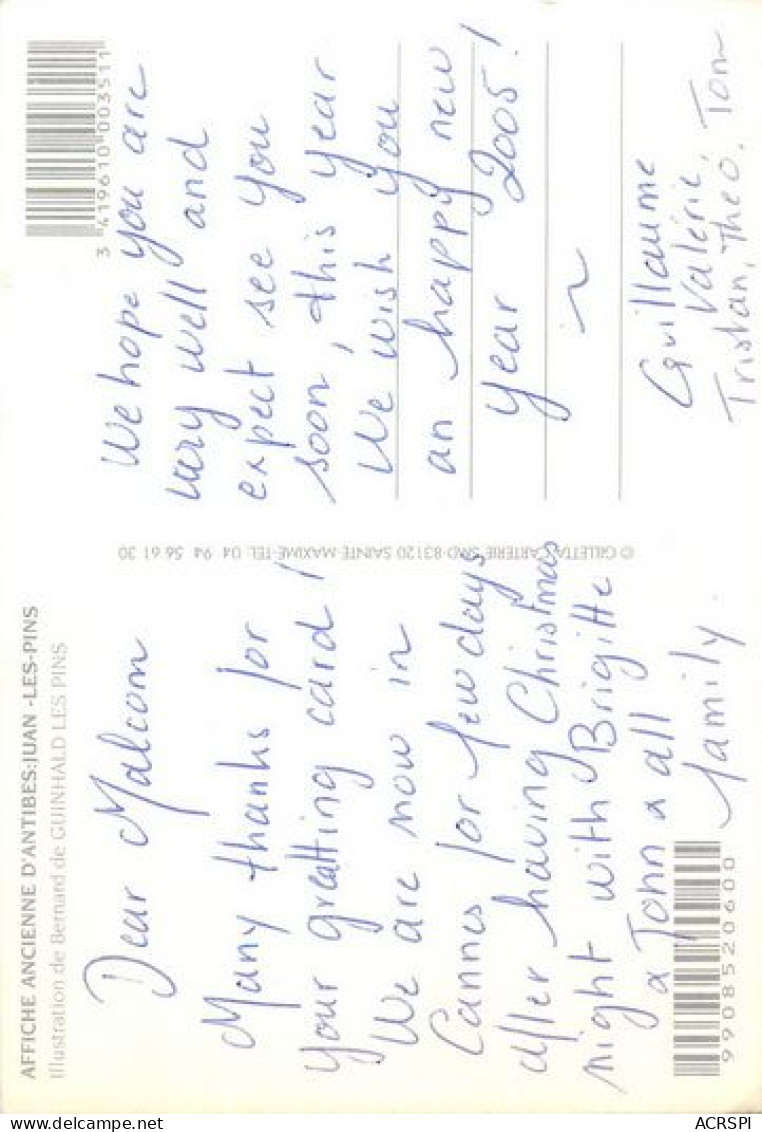 AFFICHE ANCIENNE D'ANTIBES:JUAN -LES-PINS
Illustration de Bernard de GUINHALD LES PINS
Dear Malcom
Many thanks for
your greatting card !
We are now in
Cannes for few days
after having Christmas
night with Brigitte
a John a all
family.
990852060 0
© GILLETTA-CARTERIE SMD-83120 SAINTE-MAXIME-TEL. 04 94 56 61 30
3 419610 003511
We hope you are
very well and
expect see you
soon, this year
We wish you
an happy new
year 2005!
Guillaume
Valérie,
Tristan, Theo. Tom
ACRSPI